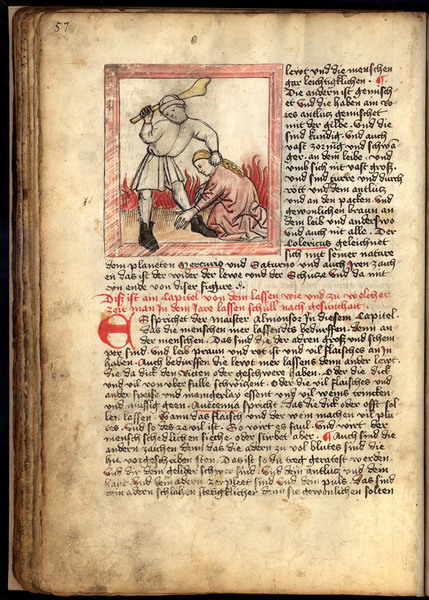 57
lewt vnd die menschen
gar leichtiklichen ·
Die andern ist gemisch
et Vnd die haben am
antlucz gemischet
mit der gilbe · Vnd die
sind kundig · Vnd auch
vast zornig vnd schwa
ger · an dem leibe · vnd
vmb sich nit vast groß ·
vnd sind durre vnd durch
rott vnd dem antlucz
vnd an den packen · Vnd
gewonlichen braun an
dem leib vnd anderswo
vnd auch nit alle · Der
Colericus geleichnet
sich mit seiner nature
dem planeten Mercurio vnd Saturno vnd auch zaich
en das ist der wider der lewe vnd der Schucze Vnd da mit
eyn ende von diser figure ·
Diß ist ain Capitel von dem lassen wie vnd zu welcher
zeit man in dem Jare lassen schull nach gesunthait
Es spricht der maister almonsor In diesem Capitel ·
das die menschen mer lassendes bedurffen · denn an
der menschen · Das sind die der adren groß vnd
sind · vnd leib praun vnd rot ist vnd vil flaisches an In
haben · Auch bedurffen die lewt mer lassens denn ander lewt ·
die da dick den Riten oder geschwere haben · Oder die dick
vnd vil von vber fulle schwiczent · Oder die vil flaisches vnd
ander speiß vnd essent vnd vil weins trincken
vnd mussig geen · Auicenna spricht · das die dick oder offt sol
len lassen · Wann das flaisch vnd der wein machen vil plu
tes · vnd so des ze vil ist · So wirt es faul · vnd wirt der
mensch schedlichen sieche · oder stirbet aber · Auch sind die
andern zaichen denn das die adern zu vol blutes sind die
hie vorgeschriben sten · Das ist so du weg geratest werden ·
Vnd dir dein gelider schwer sind · Vnd dein antlucz vnd dein
haut · Vnd dein adern sind Vnd dein puls · Das sind
dein adern schlahen stetiklichen denn sie gewonlichen solten